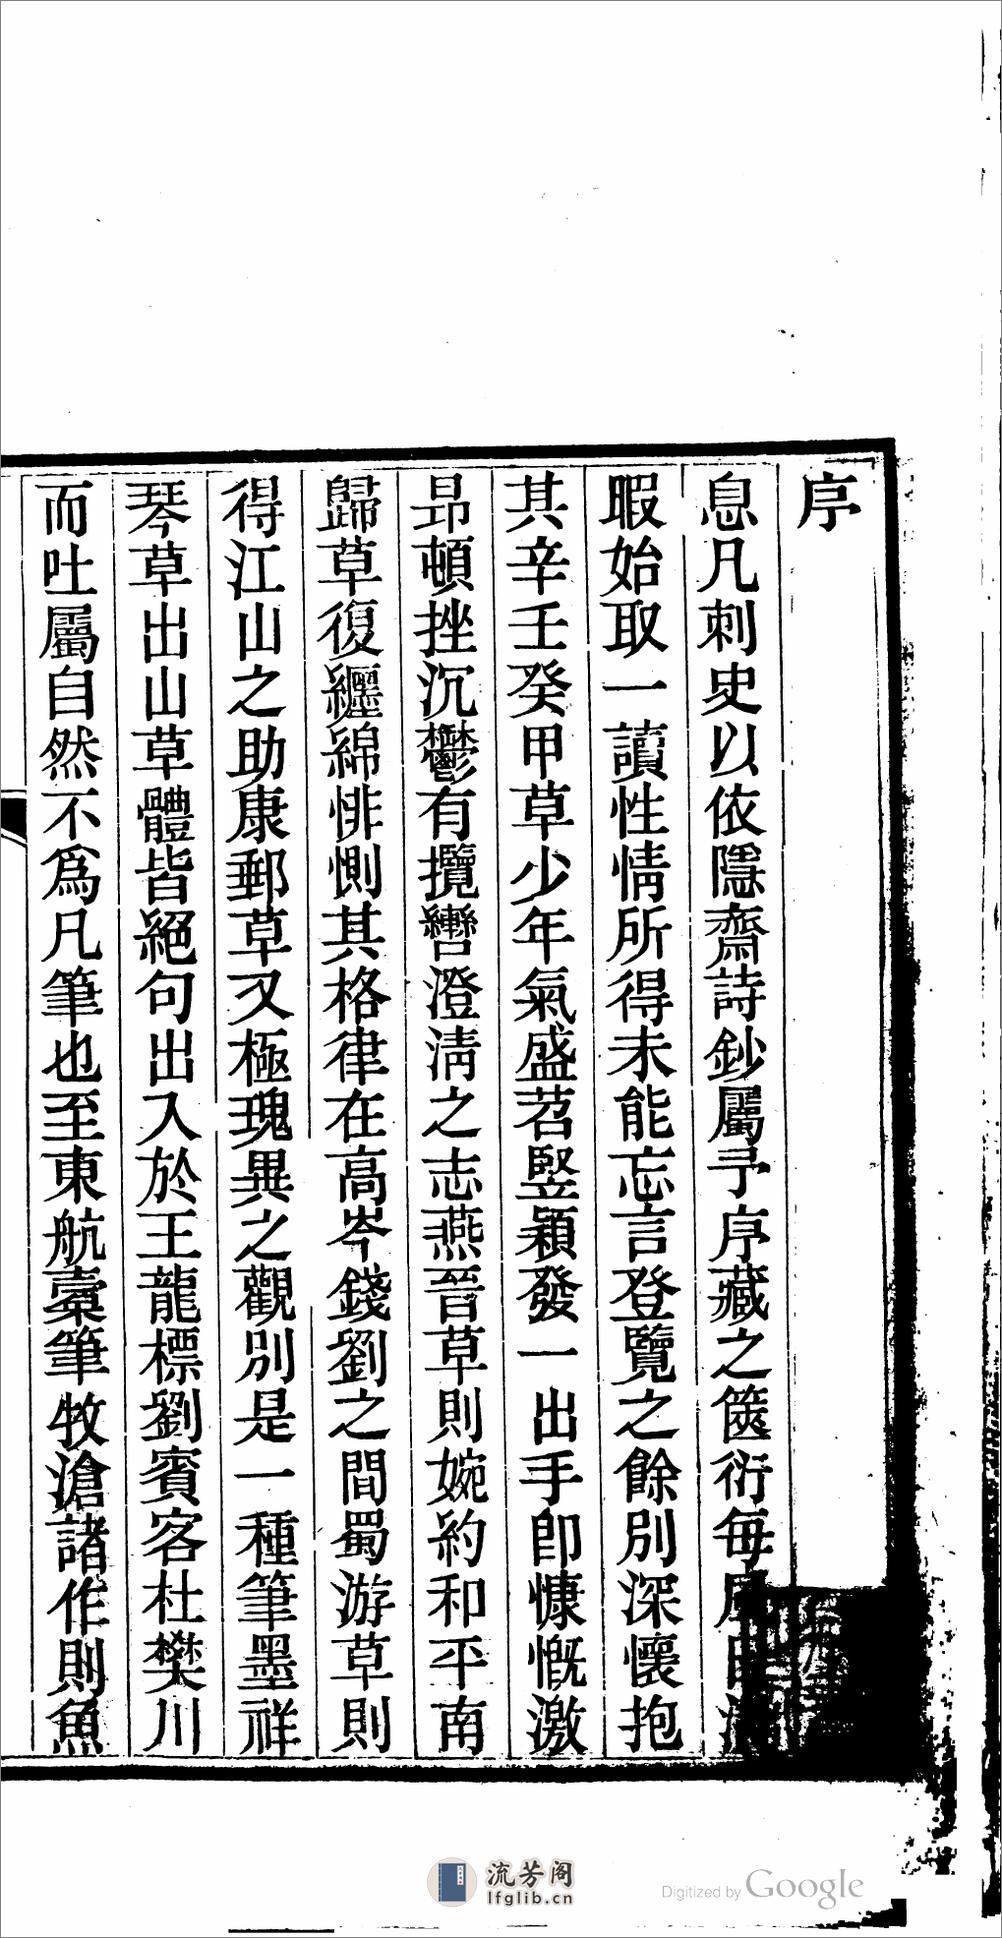 序
息凡刺史以依隱齋詩鈔屬予序藏之篋衍每風日清
暇始取一讀性情所得未能忘言登覽之餘別深懷抱
其辛壬癸甲草少年氣盛苕豎穎發一出手卽慷慨激
昂頓挫沉鬱有攬轡澄淸之志燕晉草則婉約和平南
歸草復纏綿悱惻其格律在高岑錢劉之間蜀游草則
得江山之助康郵草又極瑰異之觀別是一種筆墨祥
琴草出山草體皆絕句出入於王龍標劉賓客杜樊川
而吐屬自然不爲凡筆也至東航稾筆牧滄諸作則魚
流芳阁
lfglib.cn
Digitized by Google